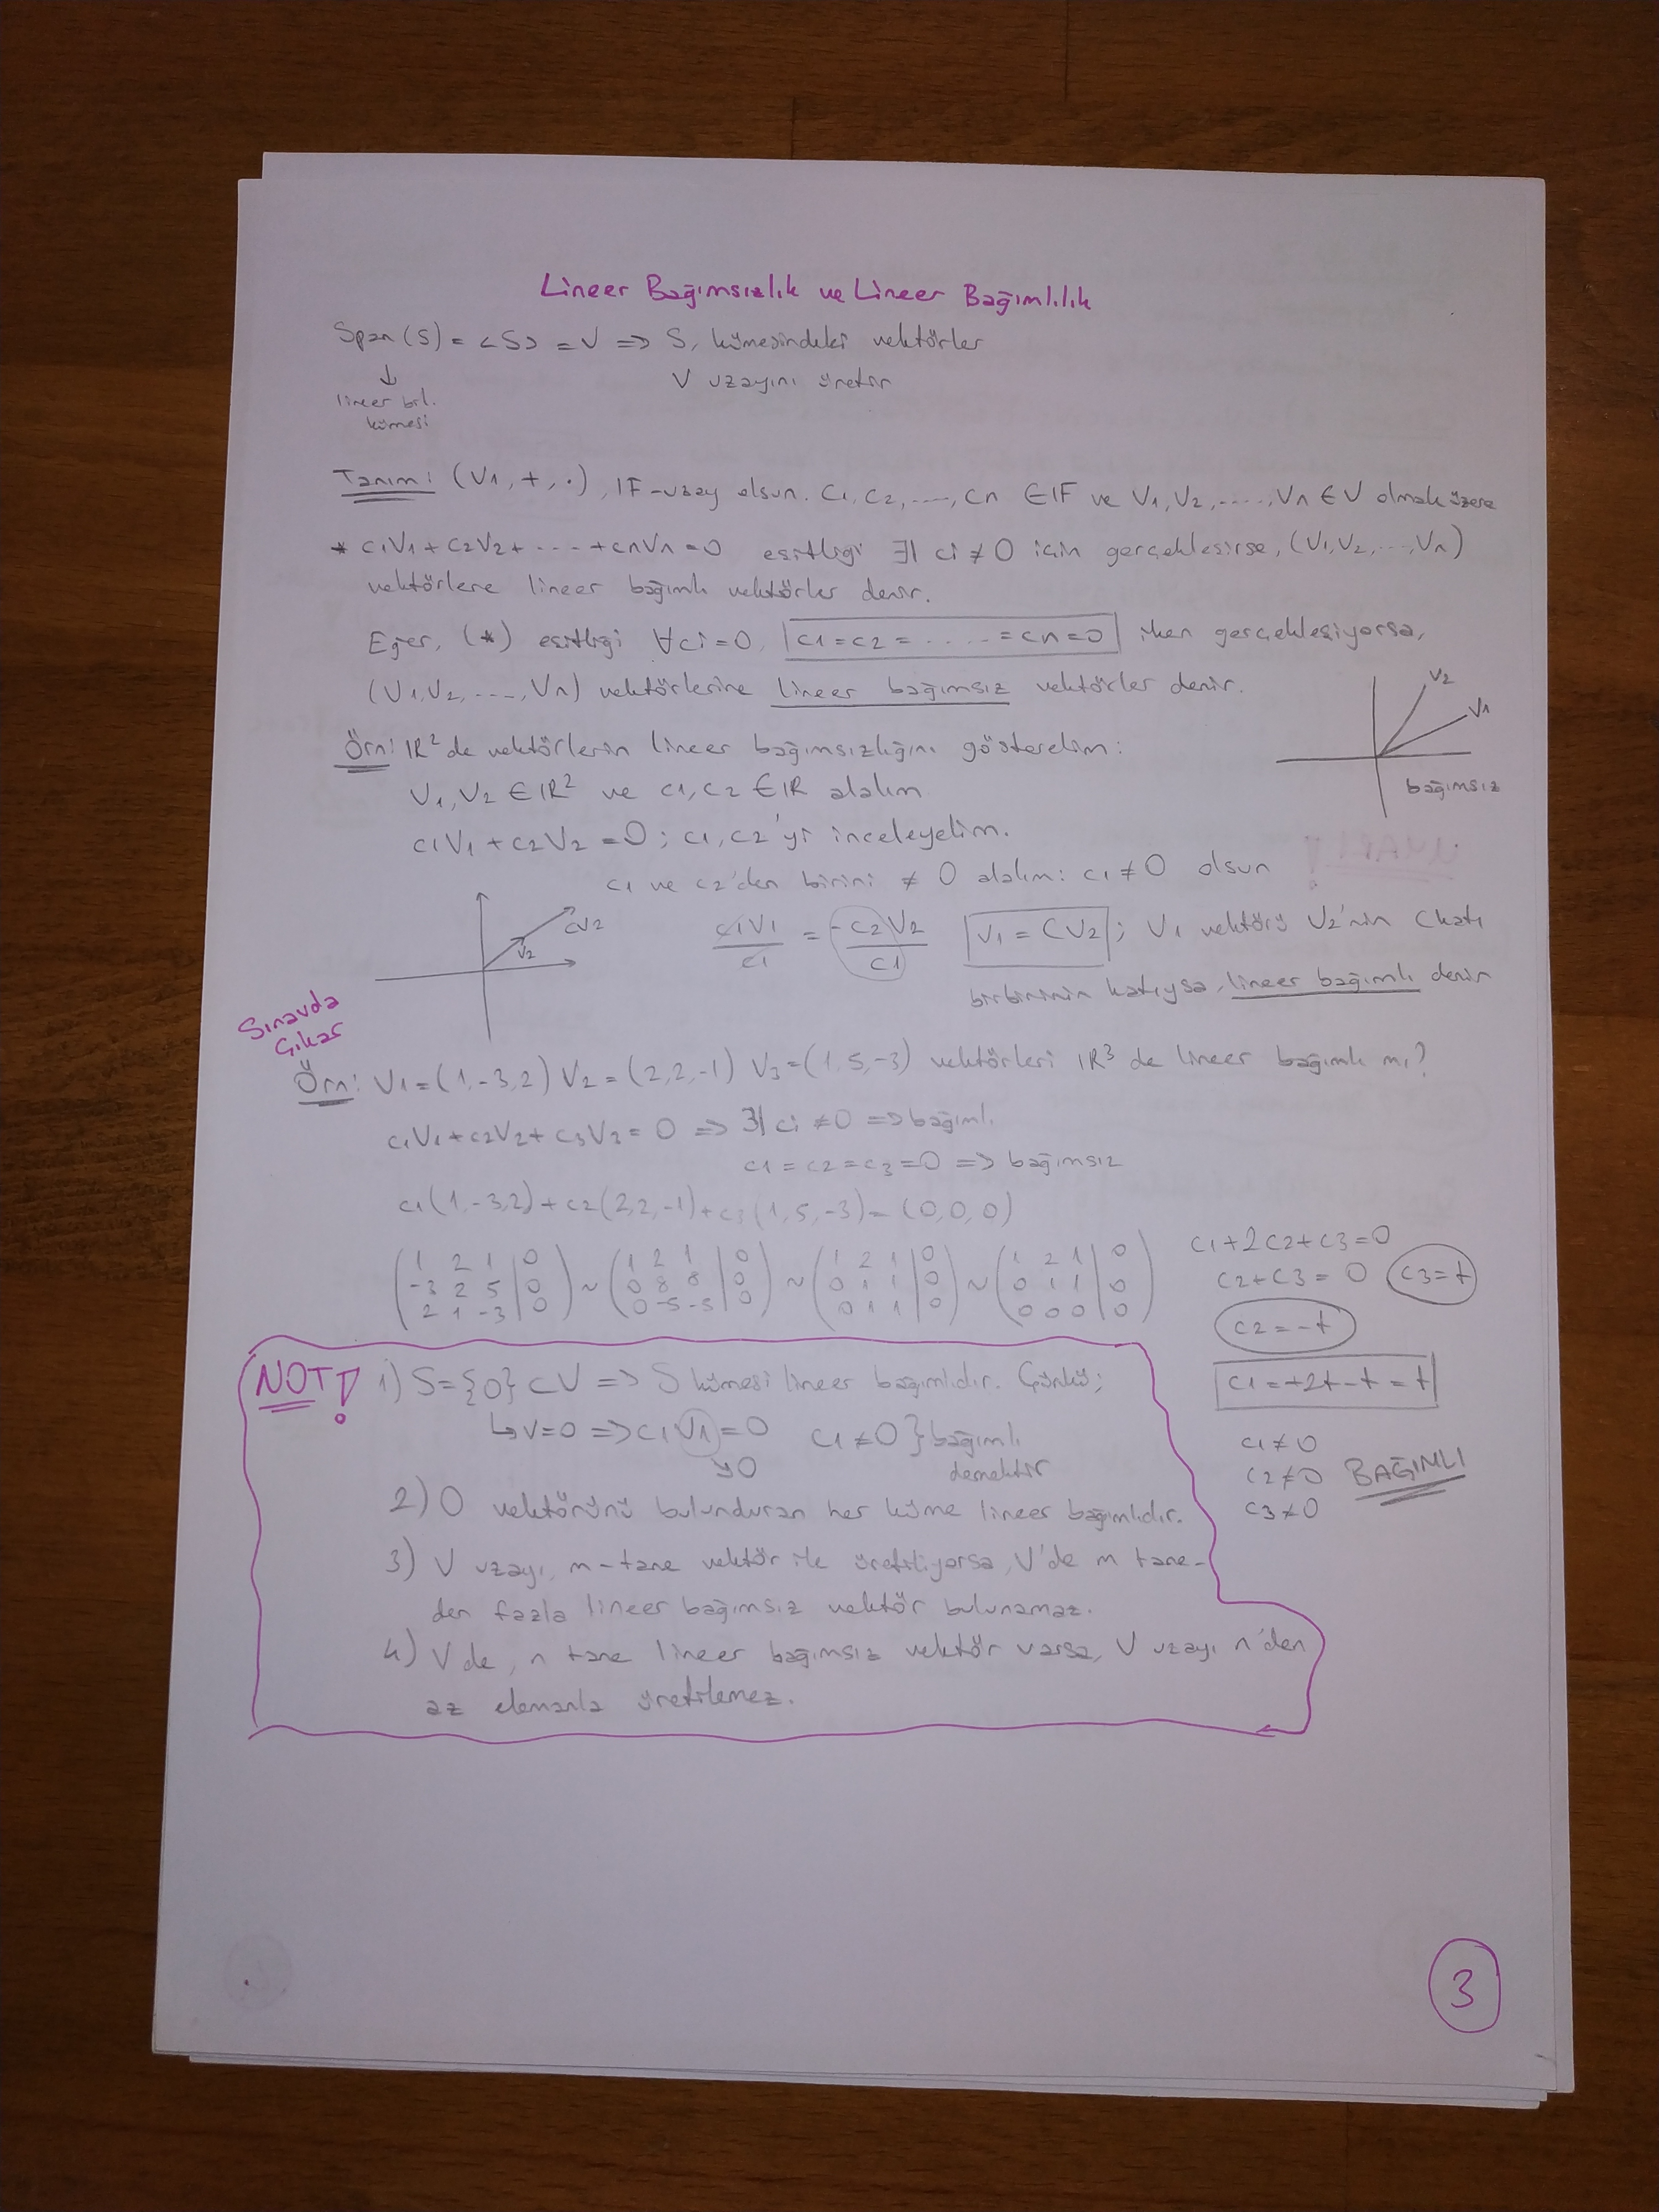 Lineer Bağımsızlık ve Lineer Bağımlılık
Span(S) = <S> = V => S, kümesindeki vektörler
↓ V uzayını üretir
lineer bil.
kümesi
Tanım: (V1, +, ·), IF-uzay olsun. C1, C2, ..., Cn ∈ IF ve V1, V2, ....., Vn ∈ V olmak üzere
* C1V1 + C2V2 + ... + CnVn = 0 eşitliği ∃| ci ≠ 0 için gerçekleşirse, (V1, V2, ..., Vn)
vektörlere lineer bağımlı vektörler denir.
Eğer, (*) eşitliği ∀ci=0, C1=C2= ..... =Cn=0 iken gerçekleşiyorsa,
(V1, V2, ..., Vn) vektörlerine lineer bağımsız vektörler denir.
V2
V1
bağımsız
Örn: IR² de vektörlerin lineer bağımsızlığını gösterelim:
V1, V2 ∈ IR² ve c1, c2 ∈ IR alalım
C1V1 + C2V2 = 0; C1, C2 yi inceleyelim.
C1 ve C2'den birini ≠ 0 alalım: C1 ≠ 0 olsun
CV2
V2
C1V1/C1 = -C2V2/C1 V1 = CV2; V1 vektörü V2'nin C katı
birbirinin katıysa, lineer bağımlı denir
Sınavda
Çıkar
Örn: V1 = (1,-3,2) V2 = (2,2,-1) V3 = (1,5,-3) vektörleri IR³ de lineer bağımlı mı?
C1V1 + C2V2 + C3V3 = 0 => ∃| ci ≠ 0 => bağımlı
C1 = C2 = C3 = 0 => bağımsız
C1(1,-3,2) + C2(2,2,-1) + C3(1,5,-3) = (0,0,0)
(1 2 1 | 0) ~ (1 2 1 | 0) ~ (1 2 1 | 0) ~ (1 2 1 | 0)
(-3 2 5 | 0) (0 8 8 | 0) (0 1 1 | 0) (0 1 1 | 0)
(2 1 -3 | 0) (0 -5 -5 | 0) (0 1 1 | 0) (0 0 0 | 0)
C1+2C2+C3=0
C2+C3=0 C3=t
C2=-t
C1=+2t-t=t
C1≠0
C2≠0 BAĞIMLI
C3≠0
NOT! 1) S={0} ⊂ V => S kümesi lineer bağımlıdır. Çünkü;
↳ V=0 => C1V1=0 C1≠0 } bağımlı
0 demektir
2) 0 vektörünü bulunduran her küme lineer bağımlıdır.
3) V uzayı, m-tane vektör ile üretiliyorsa, V'de m tane-
den fazla lineer bağımsız vektör bulunamaz.
4) V de, n tane lineer bağımsız vektör varsa, V uzayı n'den
az elemanla üretilemez.
3